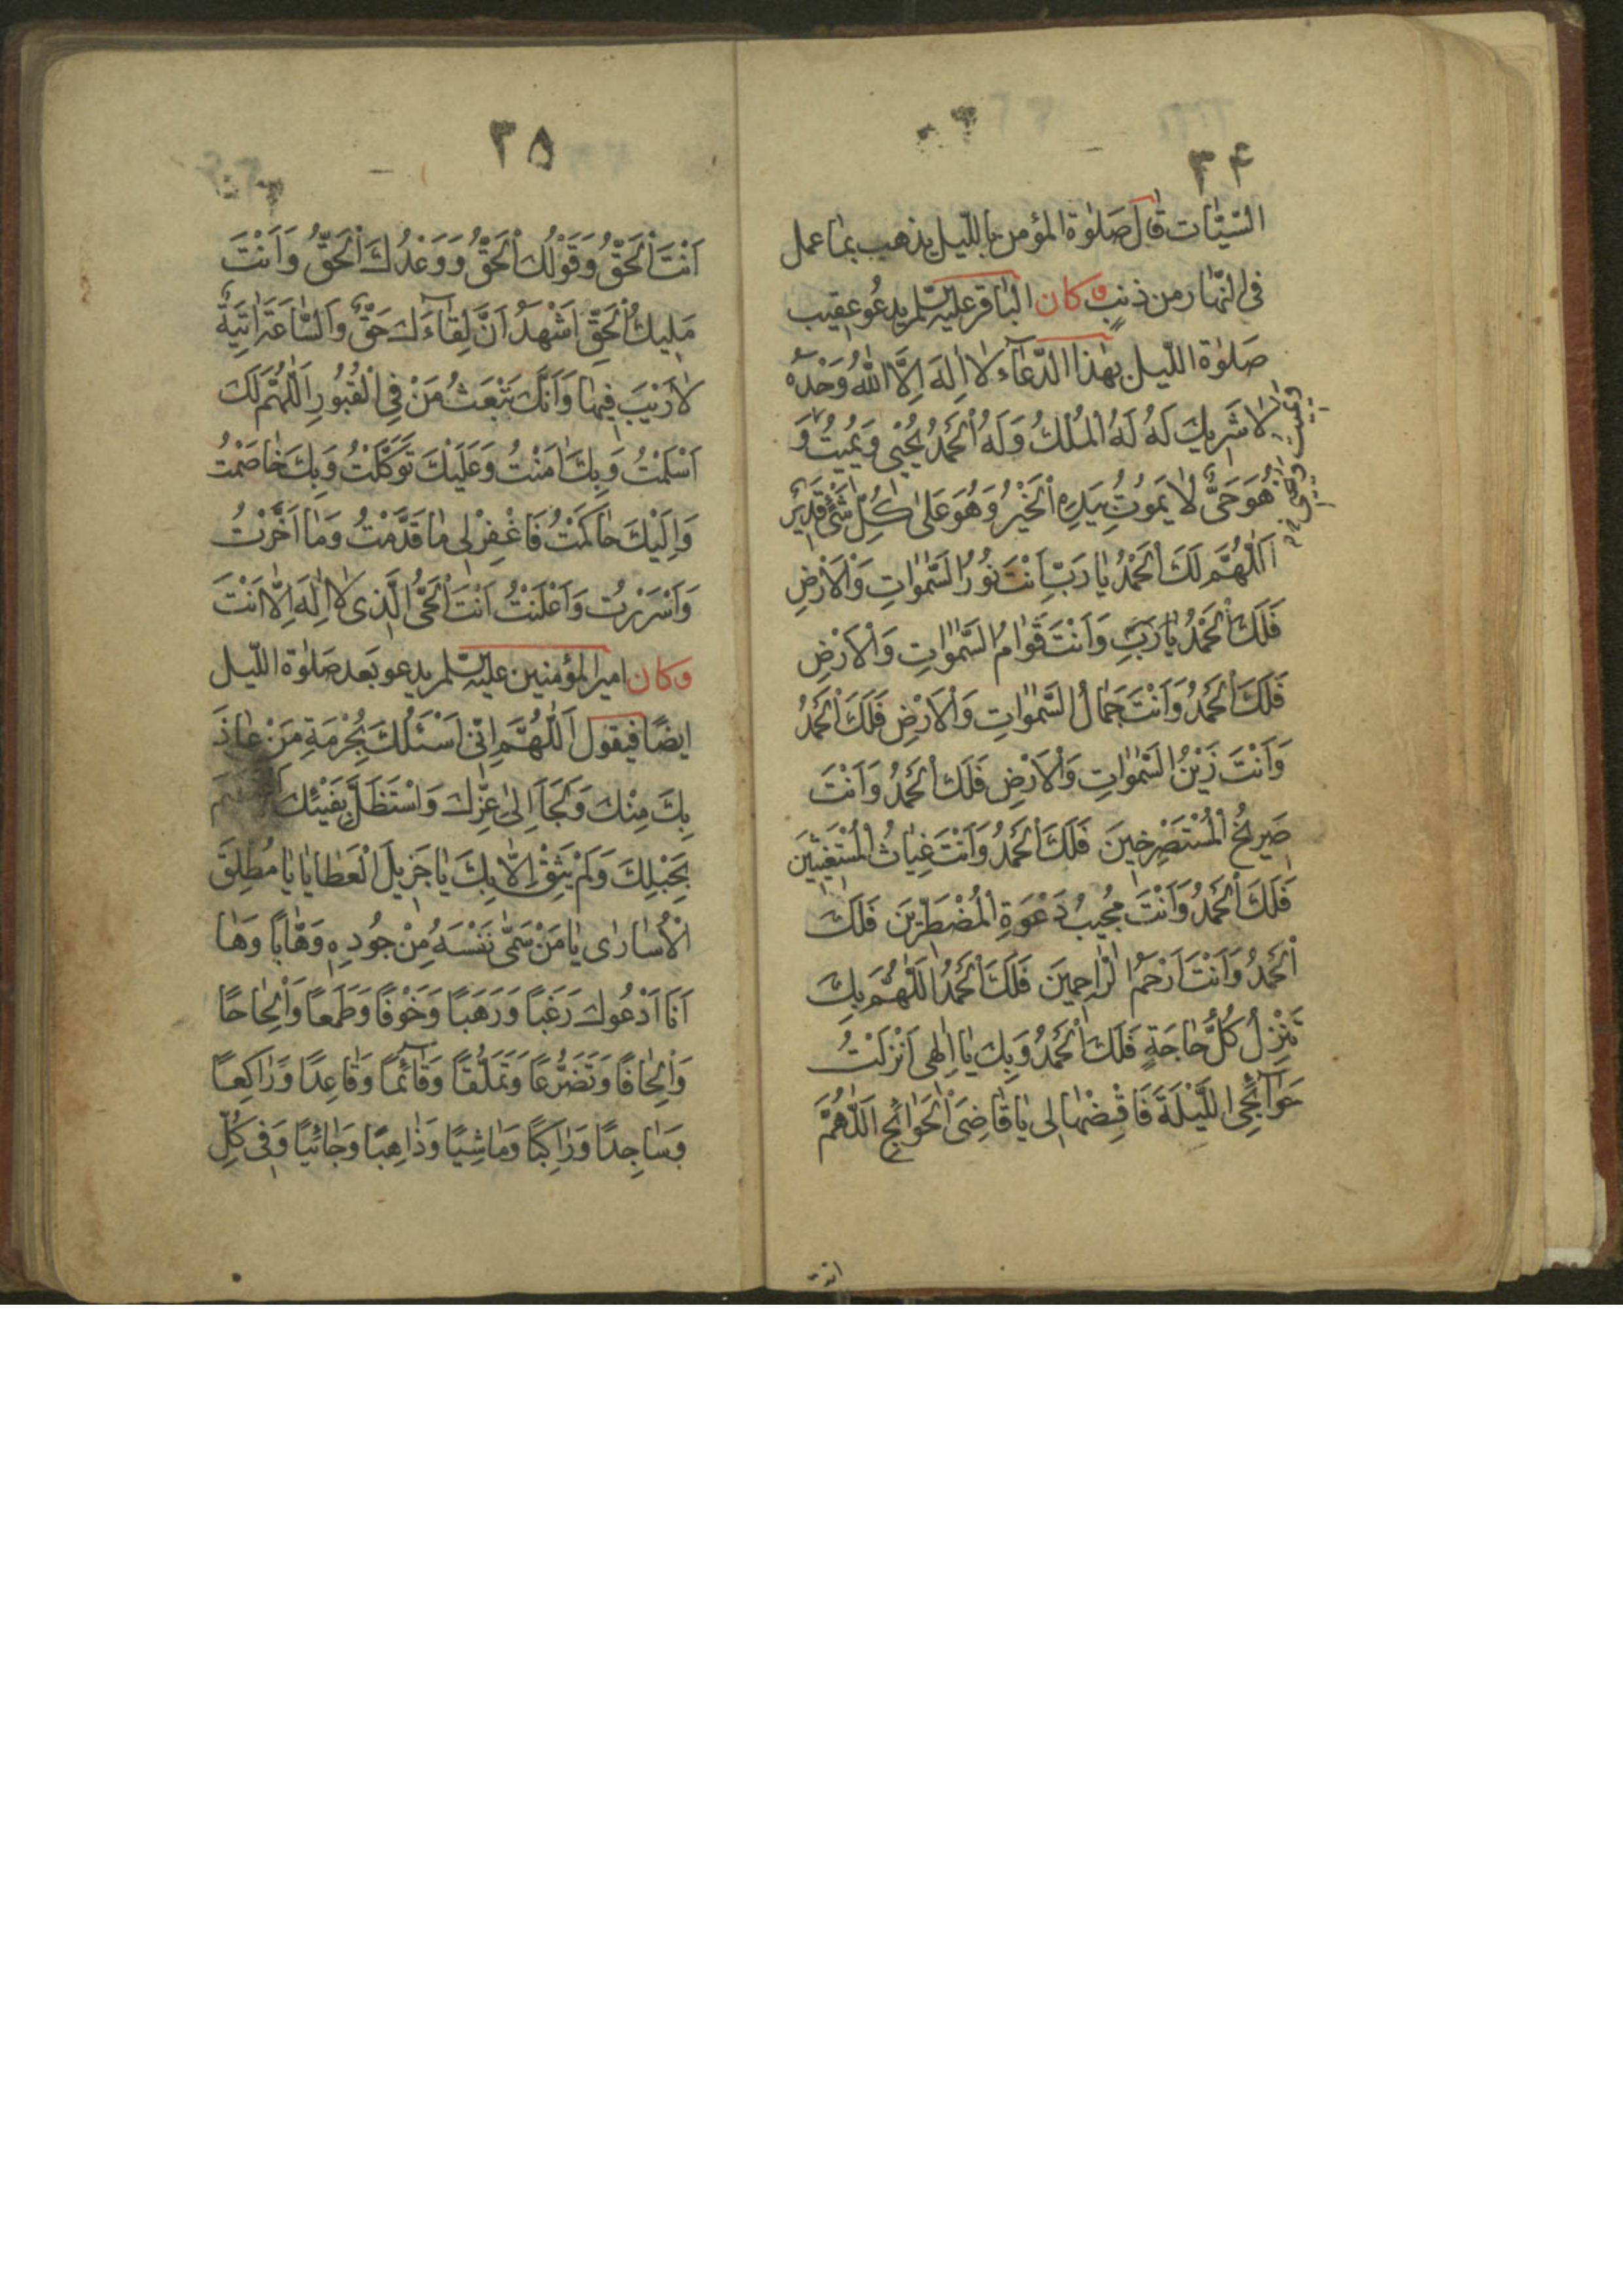 ۳۴
السَّيِّئات قالَ صَلوٰة المؤمن باللّيل يذهب بمٰا عمل
فى النّهار من ذنبٍ وكان الباقر عليه السّلم يدعُو عقيب
صَلوٰة اللّيل بهٰذا الدّعآء لاٰ اِلٰهَ اِلَّا اللّٰهُ وَحْدَهُ
لاٰ شَرٖيكَ لَهُ لَهُ الْمُلْكُ وَلَهُ الْحَمْدُ يُحْيٖي وَيُمٖيتُ وَ
وَيُمِيتُ وَيُحْيِي
هُوَ حَىٌّ لاٰ يَمُوتُ بِيَدِهِ الْخَيْرُ وَهُوَ عَلىٰ كُلِّ شَىْءٍ قَدٖيرٌ
اَللّٰهُمَّ لَكَ الْحَمْدُ يٰا رَبِّ اَنْتَ نُورُ السَّمٰوٰاتِ وَالْاَرْضِ
فَلَكَ الْحَمْدُ يٰا رَبِّ وَاَنْتَ قَوّٰامُ السَّمٰوٰاتِ وَالْاَرْضِ
فَلَكَ الْحَمْدُ وَاَنْتَ جَمٰالُ السَّمٰوٰاتِ وَالْاَرْضِ فَلَكَ الْحَمْدُ
وَاَنْتَ زَيْنُ السَّمٰوٰاتِ وَالْاَرْضِ فَلَكَ الْحَمْدُ وَاَنْتَ
صَرٖيخُ الْمُسْتَصْرِخٖينَ فَلَكَ الْحَمْدُ وَاَنْتَ غِيٰاثُ الْمُسْتَغٖيثٖينَ
فَلَكَ الْحَمْدُ وَاَنْتَ مُجٖيبُ دَعْوَةِ الْمُضْطَرّٖينَ فَلَكَ
الْحَمْدُ وَاَنْتَ اَرْحَمُ الرّٰاحِمٖينَ فَلَكَ الْحَمْدُ اَللّٰهُمَّ بِكَ
تَنْزِلُ كُلُّ حٰاجَةٍ فَلَكَ الْحَمْدُ وَبِكَ يٰا اِلٰهٖى اَنْزَلْتُ
حَوٰآئِجِى اللَّيْلَةَ فَاقْضِهٰا لٖى يٰا قٰاضِىَ الْحَوٰائِجِ اَللّٰهُمَّ
انت
۳۵
اَنْتَ الْحَقُّ وَقَوْلُكَ الْحَقُّ وَوَعْدُكَ الْحَقُّ وَاَنْتَ
مَلٖيكُ الْحَقِّ اَشْهَدُ اَنَّ لِقٰآءَكَ حَقٌّ وَالسّٰاعَةَ اٰتِيَةٌ
لاٰ رَيْبَ فٖيهٰا وَاَنَّكَ تَبْعَثُ مَنْ فِى الْقُبُورِ اَللّٰهُمَّ لَكَ
اَسْلَمْتُ وَبِكَ اٰمَنْتُ وَعَلَيْكَ تَوَكَّلْتُ وَبِكَ خٰاصَمْتُ
وَاِلَيْكَ حٰاكَمْتُ فَاغْفِرْ لٖى مٰا قَدَّمْتُ وَمٰا اَخَّرْتُ
وَاَسْرَرْتُ وَاَعْلَنْتُ اَنْتَ الْحَىُّ الَّذٖى لاٰ اِلٰهَ اِلّٰا اَنْتَ
وكان امير المؤمنين عليه السّلم يدعو بَعد صَلوٰة اللّيل
ايضًا فيقول اَللّٰهُمَّ اِنّٖى اَسْئَلُكَ بِحُرْمَةِ مَنْ عٰاذَ
بِكَ مِنْكَ وَلَجَاَ اِلىٰ عِزِّكَ وَاسْتَظَلَّ بِفَيْئِكَ
بِحَبْلِكَ وَلَمْ يَثِقْ اِلّٰا بِكَ يٰا جَزٖيلَ الْعَطٰايٰا يٰا مُطْلِقَ
الْاُسٰارىٰ يٰا مَنْ سَمّٰى نَفْسَهُ مِنْ جُودِهٖ وَهّٰابًا وَهٰا
اَنَا اَدْعُوكَ رَغَبًا وَرَهَبًا وَخَوْفًا وَطَمَعًا وَاِلْحٰاحًا
وَاِلْحٰافًا وَتَضَرُّعًا وَتَمَلُّقًا وَقٰآئِمًا وَقٰاعِدًا وَرٰاكِعًا
وَسٰاجِدًا وَرٰاكِبًا وَمٰاشِيًا وَذٰاهِبًا وَجٰائِيًا وَفٖى كُلِّ